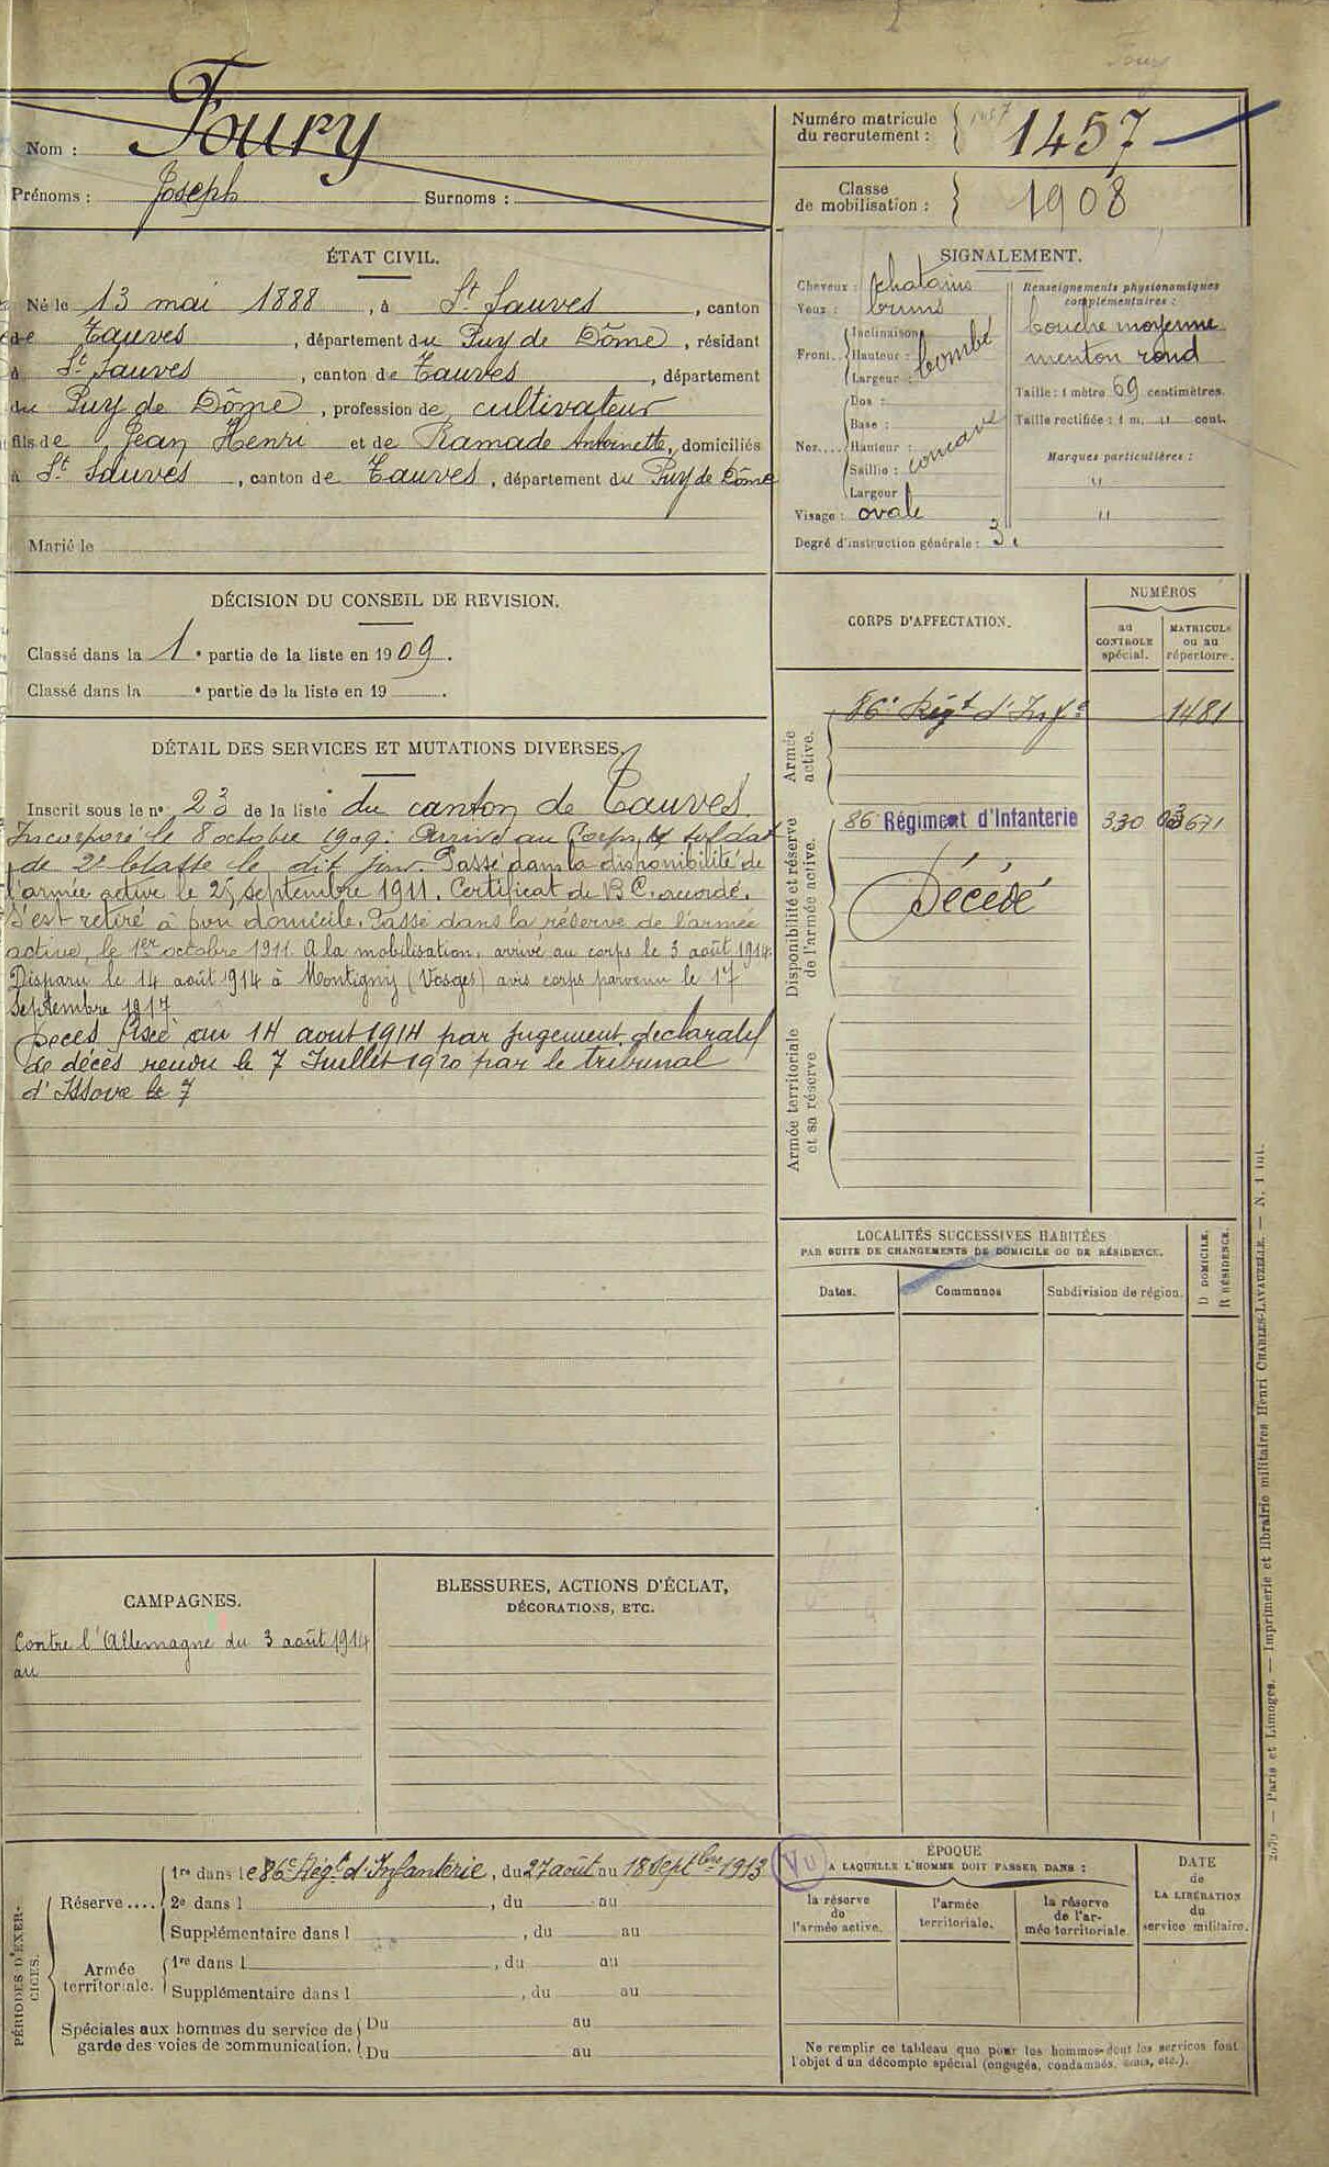 Foury
Nom : Foury
Prénoms : Joseph Surnoms :
Numéro matricule
du recrutement : 1457
Classe
de mobilisation : 1908
ÉTAT CIVIL.
Né le 13 mai 1888, à St Sauves, canton
de Tauves, département du Puy de Dôme, résidant
à St Sauves, canton de Tauves, département
du Puy de Dôme, profession de cultivateur
fils de Jean Henri et de Ramade Antoinette, domiciliés
à St Sauves, canton de Tauves, département du Puy de Dôme
Marié le
SIGNALEMENT.
Cheveux : chatains
Yeux : bruns
Front.. Inclinaison
Hauteur : bombé
Largeur :
Nez.... Dos :
Base :
Hauteur : concave
Saillie :
Largeur
Visage : ovale
Renseignements physionomiques
complémentaires :
bouche moyenne
menton rond
Taille : 1 mètre 69 centimètres.
Taille rectifiée : 1 m. " cent.
Marques particulières :
"
"
Degré d'instruction générale : 3
DÉCISION DU CONSEIL DE REVISION.
Classé dans la 1e partie de la liste en 1909.
Classé dans la e partie de la liste en 19 .
DÉTAIL DES SERVICES ET MUTATIONS DIVERSES.
Inscrit sous le n° 23 de la liste du canton de Tauves.
Incorporé le 8 octobre 1909. Arrivé au Corps, et soldat
de 2e Classe le dit jour. Passé dans la disponibilité de
l'armée active le 25 septembre 1911. Certificat de B.C. accordé.
S'est retiré à son domicile. Passé dans la réserve de l'armée
active, le 1er octobre 1911. A la mobilisation, arrivé au corps le 3 août 1914.
Disparu le 14 août 1914 à Montigny (Vosges) avis corps parvenu le 17
septembre 1917.
Deces fixée au 14 aout 1914 par jugement declaratif
de décès rendu le 7 Juillet 1920 par le tribunal
d'Issoire le 7
CORPS D'AFFECTATION.
NUMÉROS
au
CONTROLE
spécial.
MATRICULE
ou au
répertoire.
Armée
active.
86e Régt d'Infie 1481
Disponibilité et réserve
de l'armée active.
86 Régiment d'Infanterie 330 03671
Décédé
Armée territoriale
et sa réserve
LOCALITÉS SUCCESSIVES HABITÉES
PAR SUITE DE CHANGEMENTS DE DOMICILE OU DE RÉSIDENCE.
Dates.
Communes
Subdivision de région.
D DOMICILE.
R RÉSIDENCE.
CAMPAGNES.
Contre l'Allemagne du 3 août 1914
au
BLESSURES, ACTIONS D'ÉCLAT,
DÉCORATIONS, ETC.
PÉRIODES D'EXER-
CICES.
Réserve.... 1re dans le 86e Régt d'Infanterie, du 27 août au 18 Septbre 1913
2e dans l , du au
Supplémentaire dans l , du au
Armée
territoriale. 1re dans l , du au
Supplémentaire dans l , du au
Spéciales aux hommes du service de
garde des voies de communication. Du au
Du au
Vu
ÉPOQUE
A LAQUELLE L'HOMME DOIT PASSER DANS :
la réserve
de
l'armée active.
l'armée
territoriale.
la réserve
de l'ar-
mée territoriale
DATE
de
LA LIBÉRATION
du
service militaire.
Ne remplir ce tableau que pour les hommes dont les services font
l'objet d'un décompte spécial (engagés, condamnés, omis, etc.).
2679 — Paris et Limoges. — Imprimerie et librairie militaires Henri CHARLES-LAVAUZELLE. — N. 1 int.